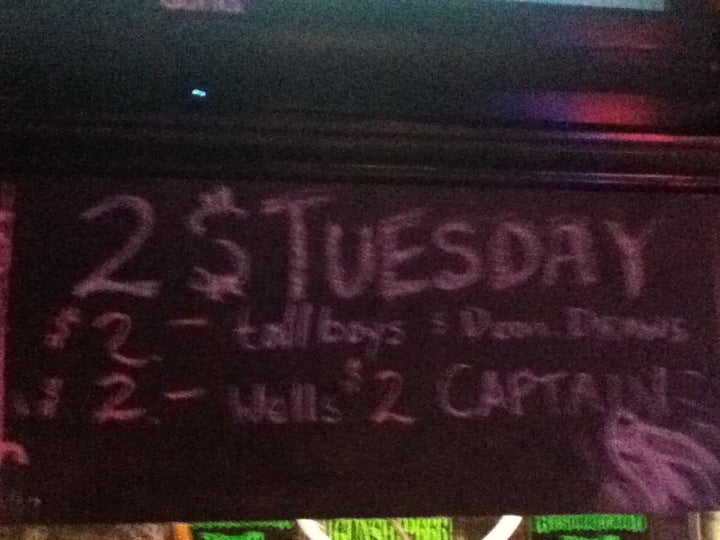 2$ TUESDAY
$2.- tall boys $ Dom. Draws
$2.- Wells $2 CAPTAINS